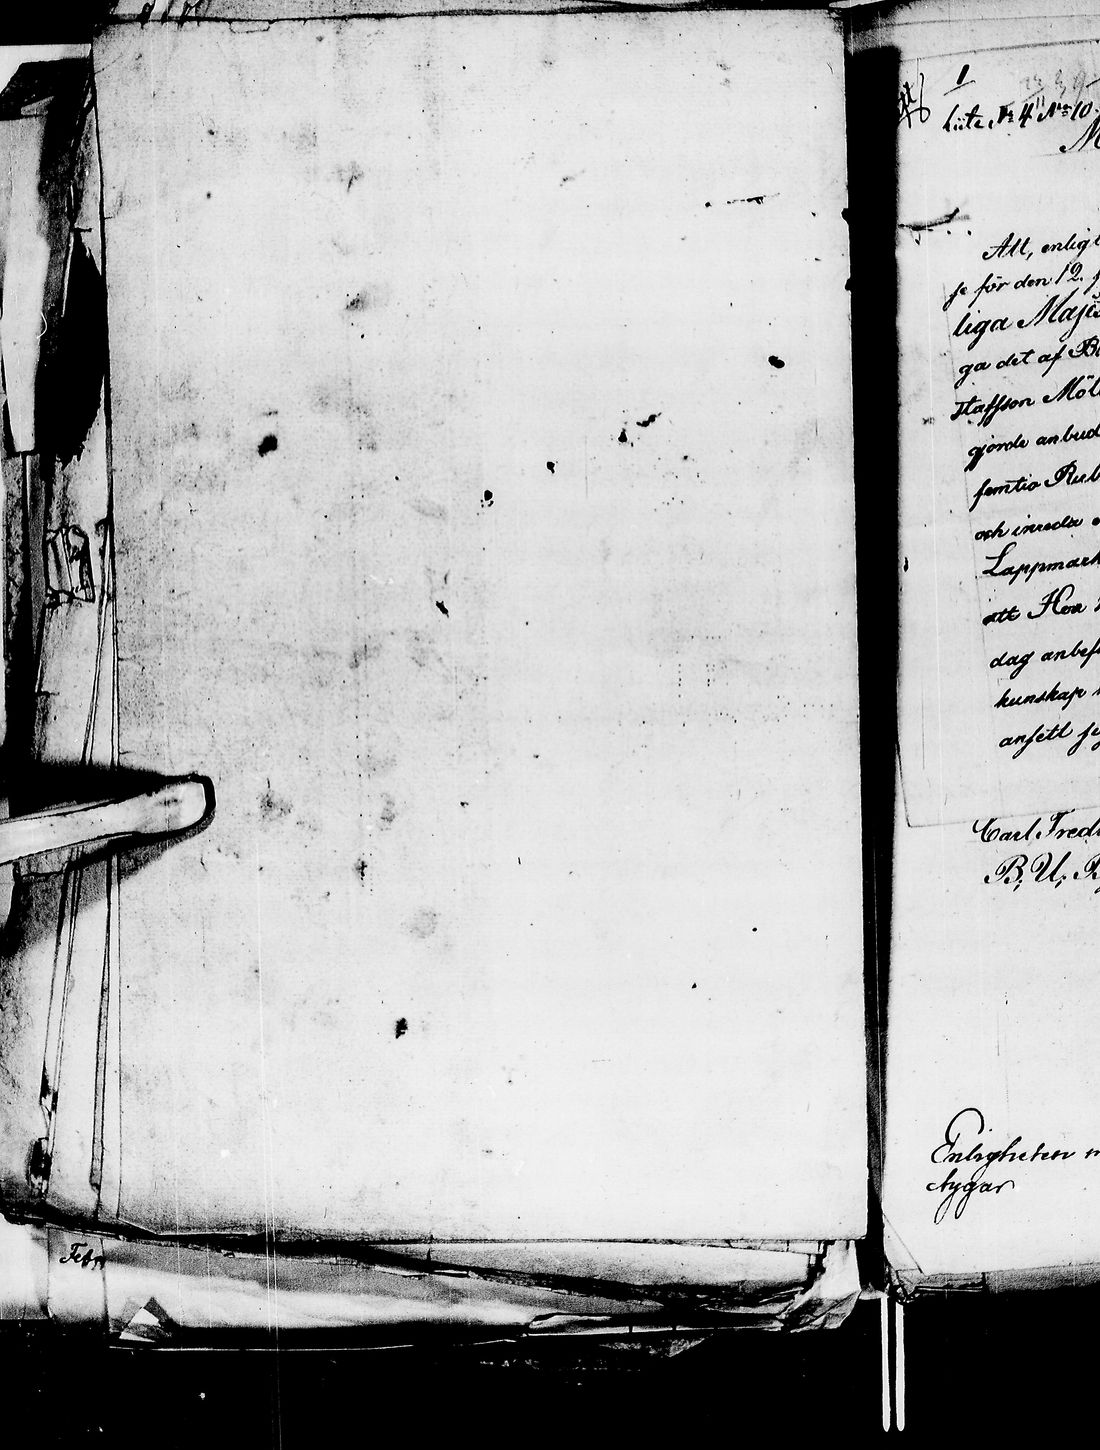 1
Lit: N: 4 N: 10
Att, enligt
se för den 12.
liga Majes
ga det af B
staffson Möl
gjorde anbud
femtio Rub
och inreda
Lappmark
att Hos
dag anbef
kunskap
ansett
Carl Fred
B, U, B
Enligheten
tygar
Feb